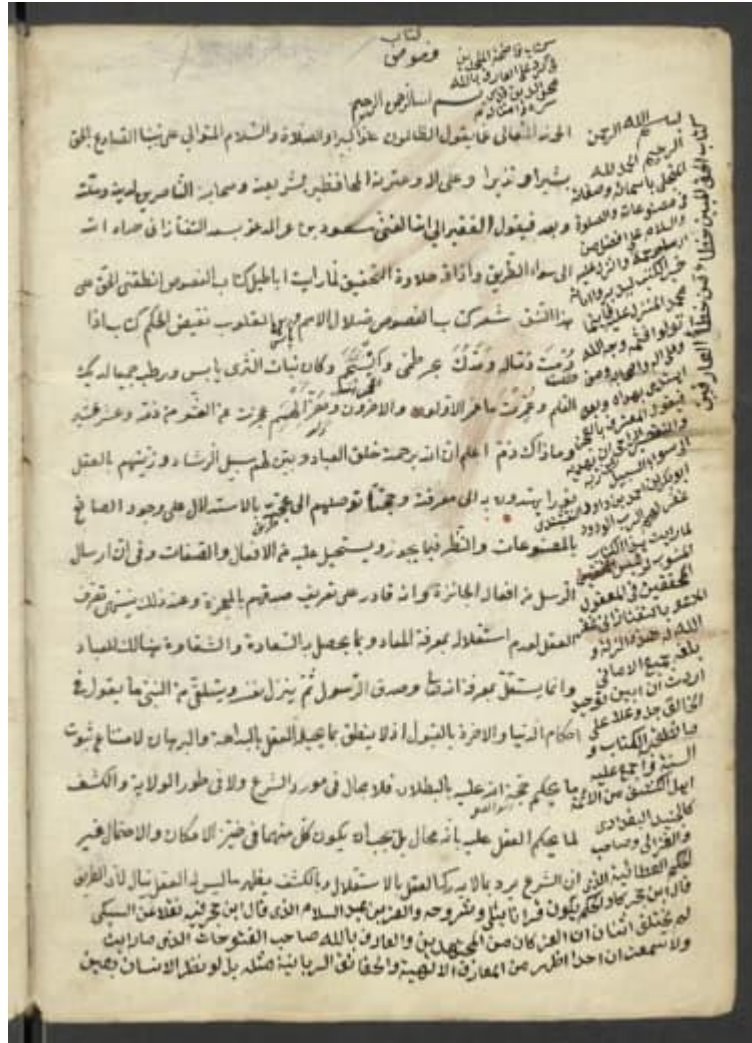 كتاب
فصوص
كتاب فاضحة الملحدين
في الرد على العارف بالله
محيي الدين
بسم الله الرحمن الرحيم
تعالى عما يقول الظالمون علوا كبيرا والصلاة والسلام المتوالي على نبينا الصادع بالحق
بشيرا ونذيرا وعلى آله وعترته الحافظين لشريعته وصحابته الناصرين لدينه وملته
وبعد فيقول الفقير الى الله الغني مسعود بن عمر المدعو بسعد التفتازاني هداه الله
الى سواء الطريق واذاقه حلاوة التحقيق لما رايت اباطيل كتاب الفصوص انطقني الحق على
هذا النسق شعر كتاب الفصوص ضلال الامم ورين القلوب نقيض الحكم كتاب اذا
رمت ذماله وكان نبات الثرى يابس ورطب جميعا لديك
القلم وعمرت ما عمر الاولون والآخرون عجزت عن العشر من ذمه وعشر عشير
وما ذاك ذم اعلم ان الله برحمته خلق العباد وبين لهم سبيل الرشاد وزينهم بالعقل
نورا يهتدون به الى معرفته وحجة توصلهم الى محجته بالاستدلال على وجود الصانع
بالمصنوعات والنظر فيما يجوز ويستحيل عليه من الافعال والصفات وفي ان ارسال
الرسل من افعاله الجائزة وانه قادر على تعريف صدقهم بالمعجزة وعند ذلك ينتهي تصرف
العقل لعدم استقلاله بمعرفة المعاد وبما يحصل به السعادة والشقاوة هنالك للعباد
وانما يستقل بمعرفة الله وصدق الرسول ثم ينزل نفسه ويتلقى من النبي ما يقول في
احكام الدنيا والآخرة بالقبول اذ لا ينطق بما يحيله العقل بالبداهة والبرهان لامتناع ثبوت
ما يحكم حجة الله عليه بالبطلان فلا مجال في مورد الشرع ولا في طور الولاية والكشف
لما يحكم العقل عليه بانه محال بل يجب ان يكون كل منهما في حيز الامكان والاحتمال غير
ان الشرع يرد بما لا يدركه العقل بالاستقلال وبالكشف يظهر ما ليس له العقل ينال لان الطريق
كتاب الحق المبين خطأ من خطأ العارفين
بسم الله الرحمن
الرحيم الحمد لله
المتجلي باسمائه وصفاته
في مصنوعاته والصلوة
والسلام على افضل من
ارسله رحمة وانزل عليه
خير الكتب
محمد المنزل عليه فاينما
تولوا فثم وجه الله
وعلى آله واصحابه ومن
اهتدى بهداه وبعد
فيقول المعترف بالعجز
الى سواء السبيل
ابو بكر بن احمد بن داود النقشبندي
غفر لهم الرب الودود
لما رايت هذا الكتاب
المنسوب
المحققين في المعقول
التفتازاني غفر
الله له هذه الزلة و
بلغه جميع الاماني
اردت ان ابين توحيد
الخالق جل وعلا على
ما نطق به الكتاب و
السنة واجمع عليه
اهل الكشف من الائمة
كالجنيد البغدادي
والغزالي وصاحب
الحكم العطائية الذي
قال ابن حجر كاد الحكم يكون قرآنا يتلى ومشروحه والعز بن عبد السلام الذي قال ابن حجر فيه نقلا عن السبكي
لم يختلف اثنان ان العز كان من المجتهدين والعارف بالله صاحب الفتوحات الذي ما رايت
ولا سمعت ان احدا اظهر من المعارف الالهية والحقائق الربانية مثله بل لو نظر الانسان بعين